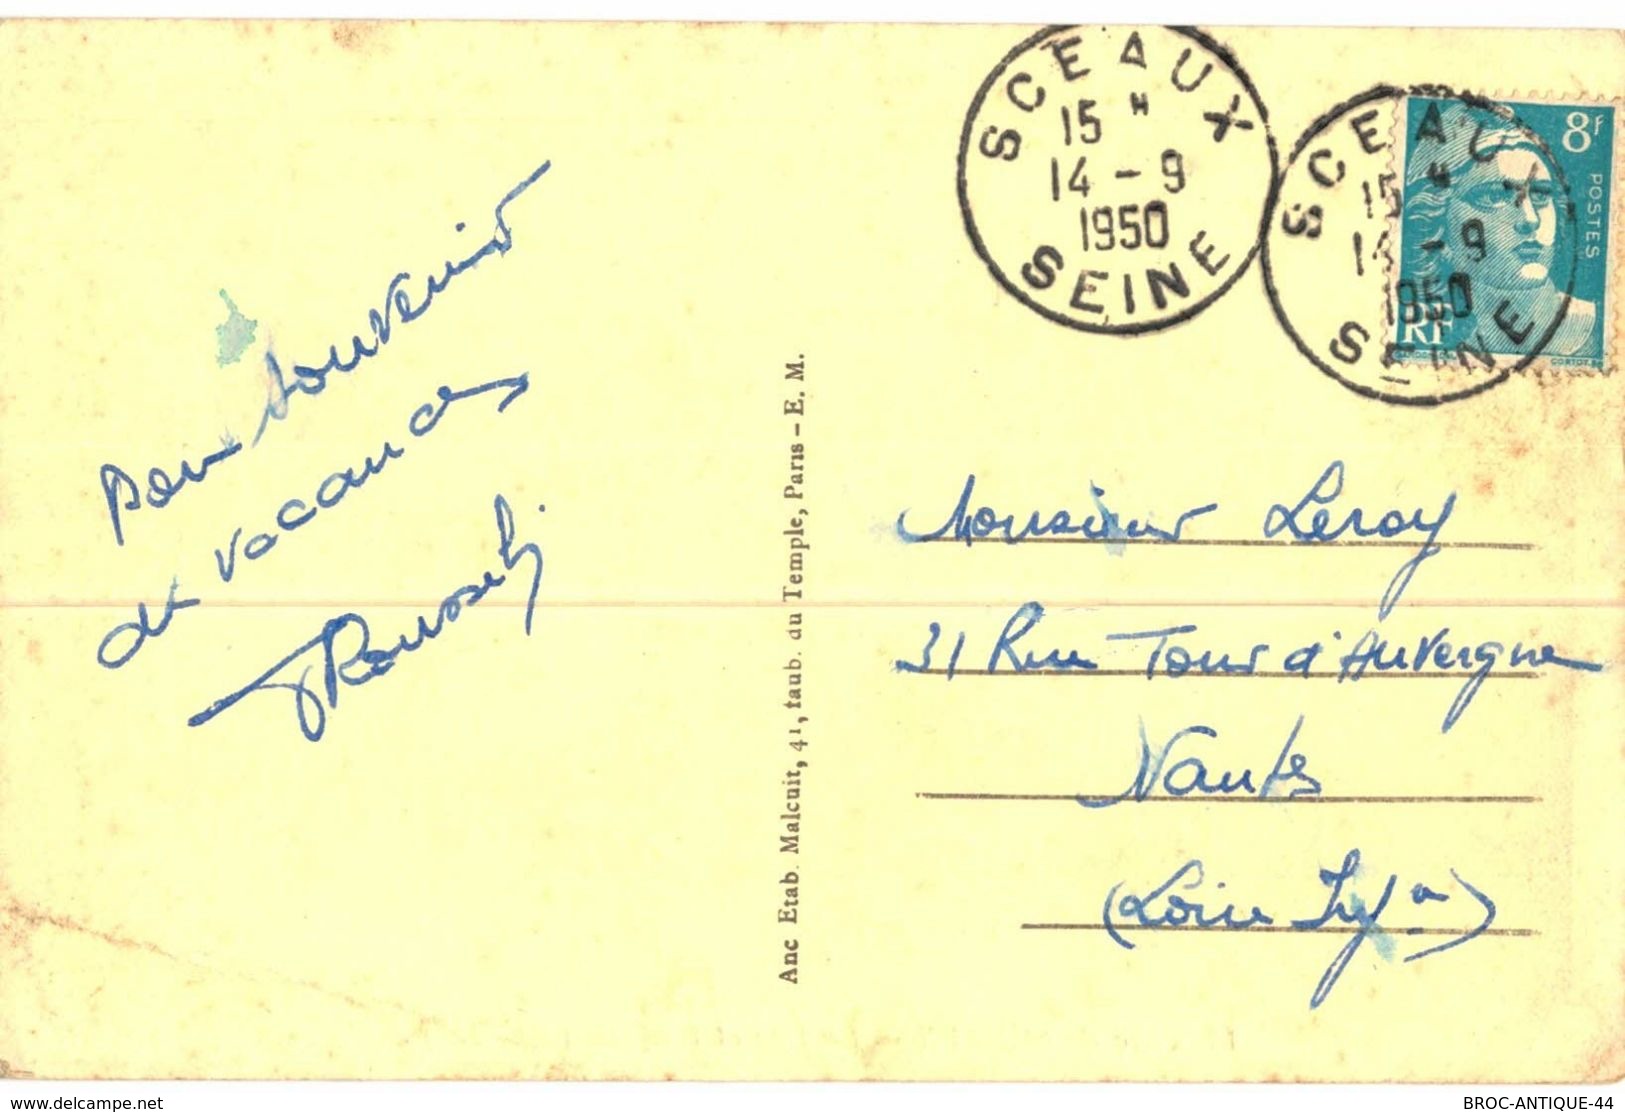 SCEAUX
15 H
14 - 9
1950
SEINE
SCEAUX
15 H
14 - 9
1950
SEINE
8F
POSTES
RF
Pour souvenir
de vacances
Anc Etab. Malcuit, 41, faub. du Temple, Paris - E. M.
Monsieur Leroy
31 Rue Tour d'Auvergne
Nantes
(Loire Infre)
www.delcampe.net
BROC-ANTIQUE-44